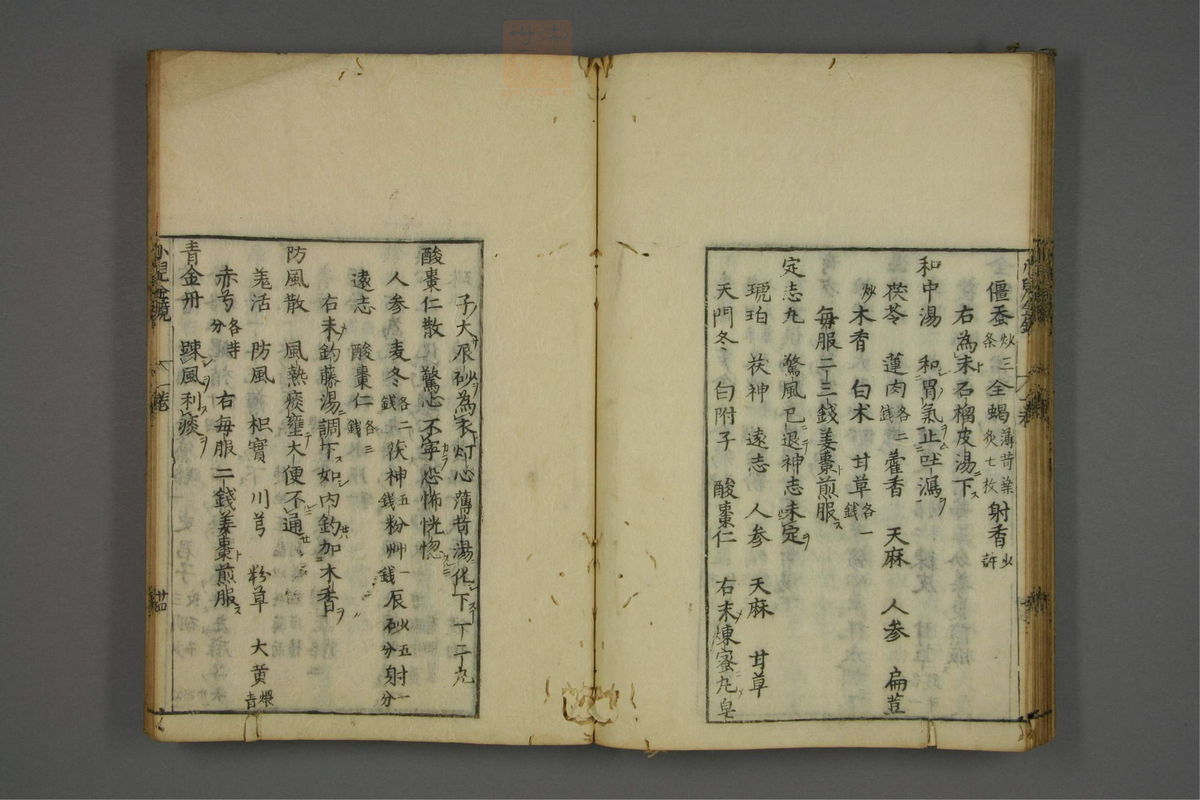 僵蚕炒三条 全蝎薄苛葉炙七枚 射香少許
右為末石榴皮湯下ス
和中湯 和胃氣止吐瀉
茯苓 蓮肉各二錢 藿香 天麻 人参 扁荳
炒 木香 白术 甘草各一錢
毎服二三錢姜棗煎服ス
定志丸 驚風已退神志未定
琥珀 茯神 遠志 人参 天麻 甘草
天門冬 白附子 酸棗仁 右末煉蜜丸皂
子大辰砂為衣灯心薄苛湯化下一二丸
酸棗仁散 驚心不寧恐怖恍惚
人参 麦冬各二錢 茯神五分 粉艸一錢 辰砂五分 射一分
遠志 酸棗仁各三錢
右末釣藤湯調下如内釣加木香
防風散 風熱痰壅大便不通
羗活 防風 枳實 川芎 粉草 大黄煨
赤芍各等分 右毎服二錢姜棗煎服ス
青金丹 踈風利痰